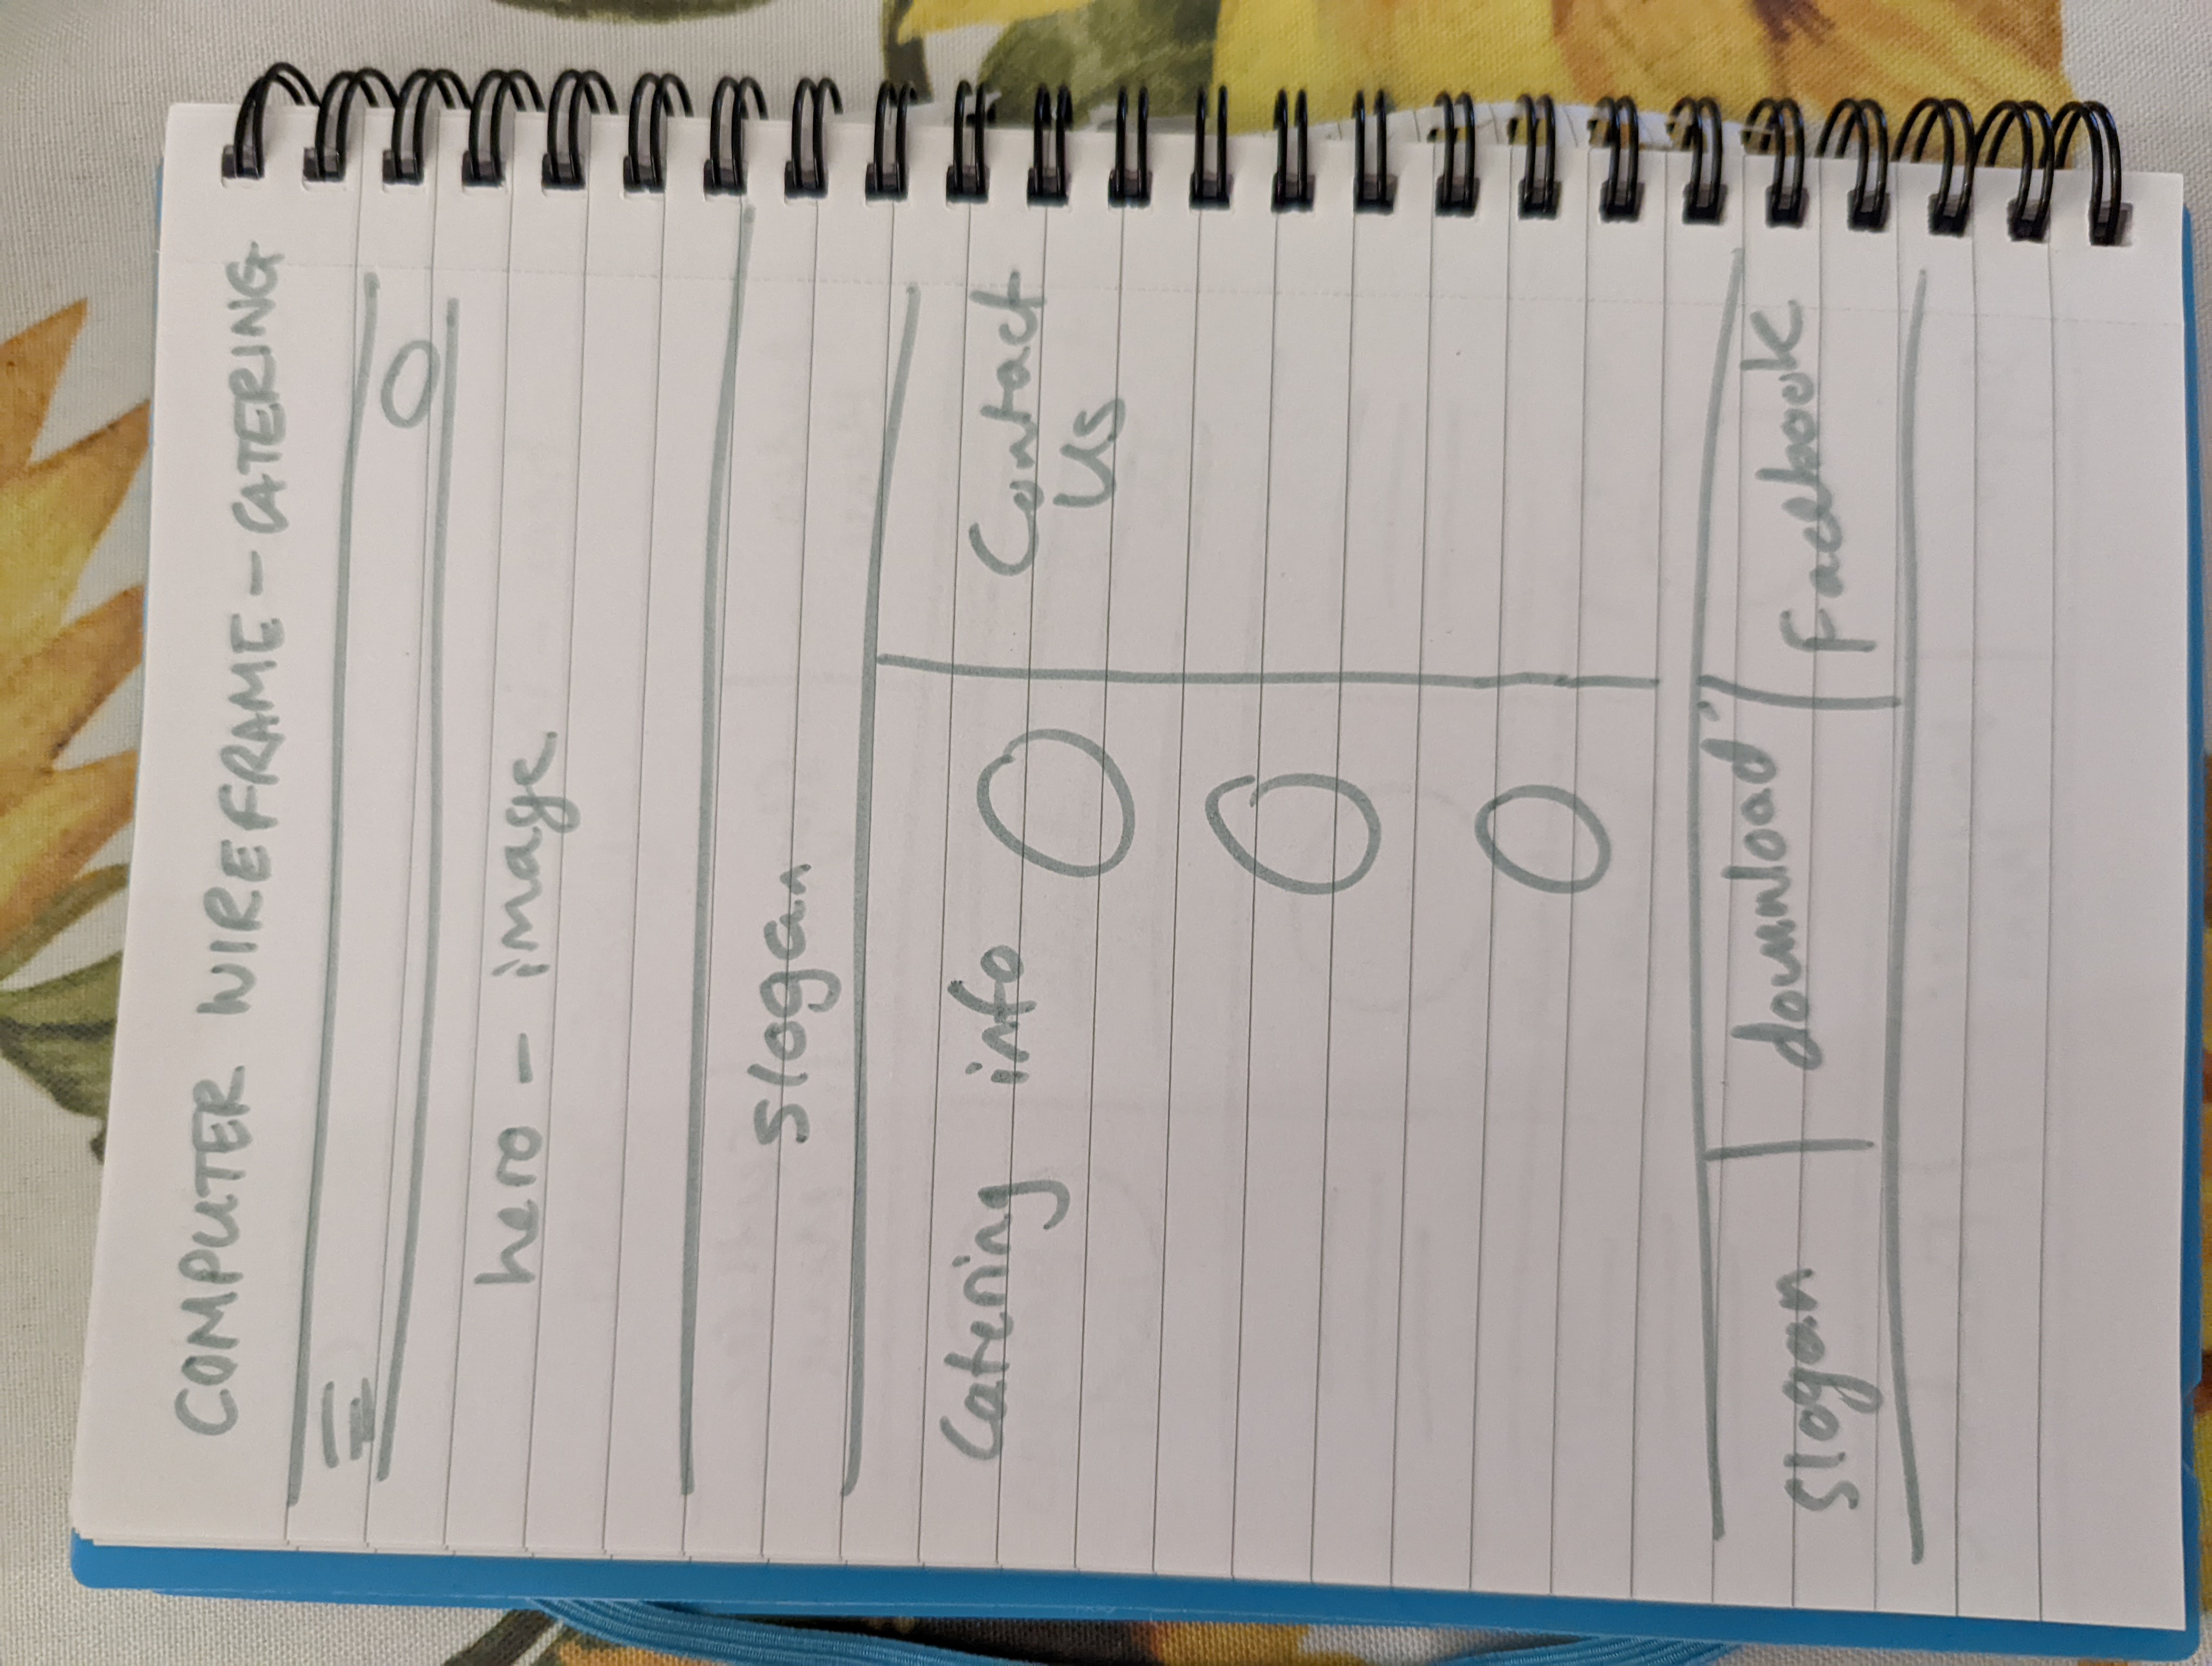 COMPUTER WIREFRAME - CATERING
hero - image
Slogan
Catering info
Contact
Us
Slogan
download
Facebook